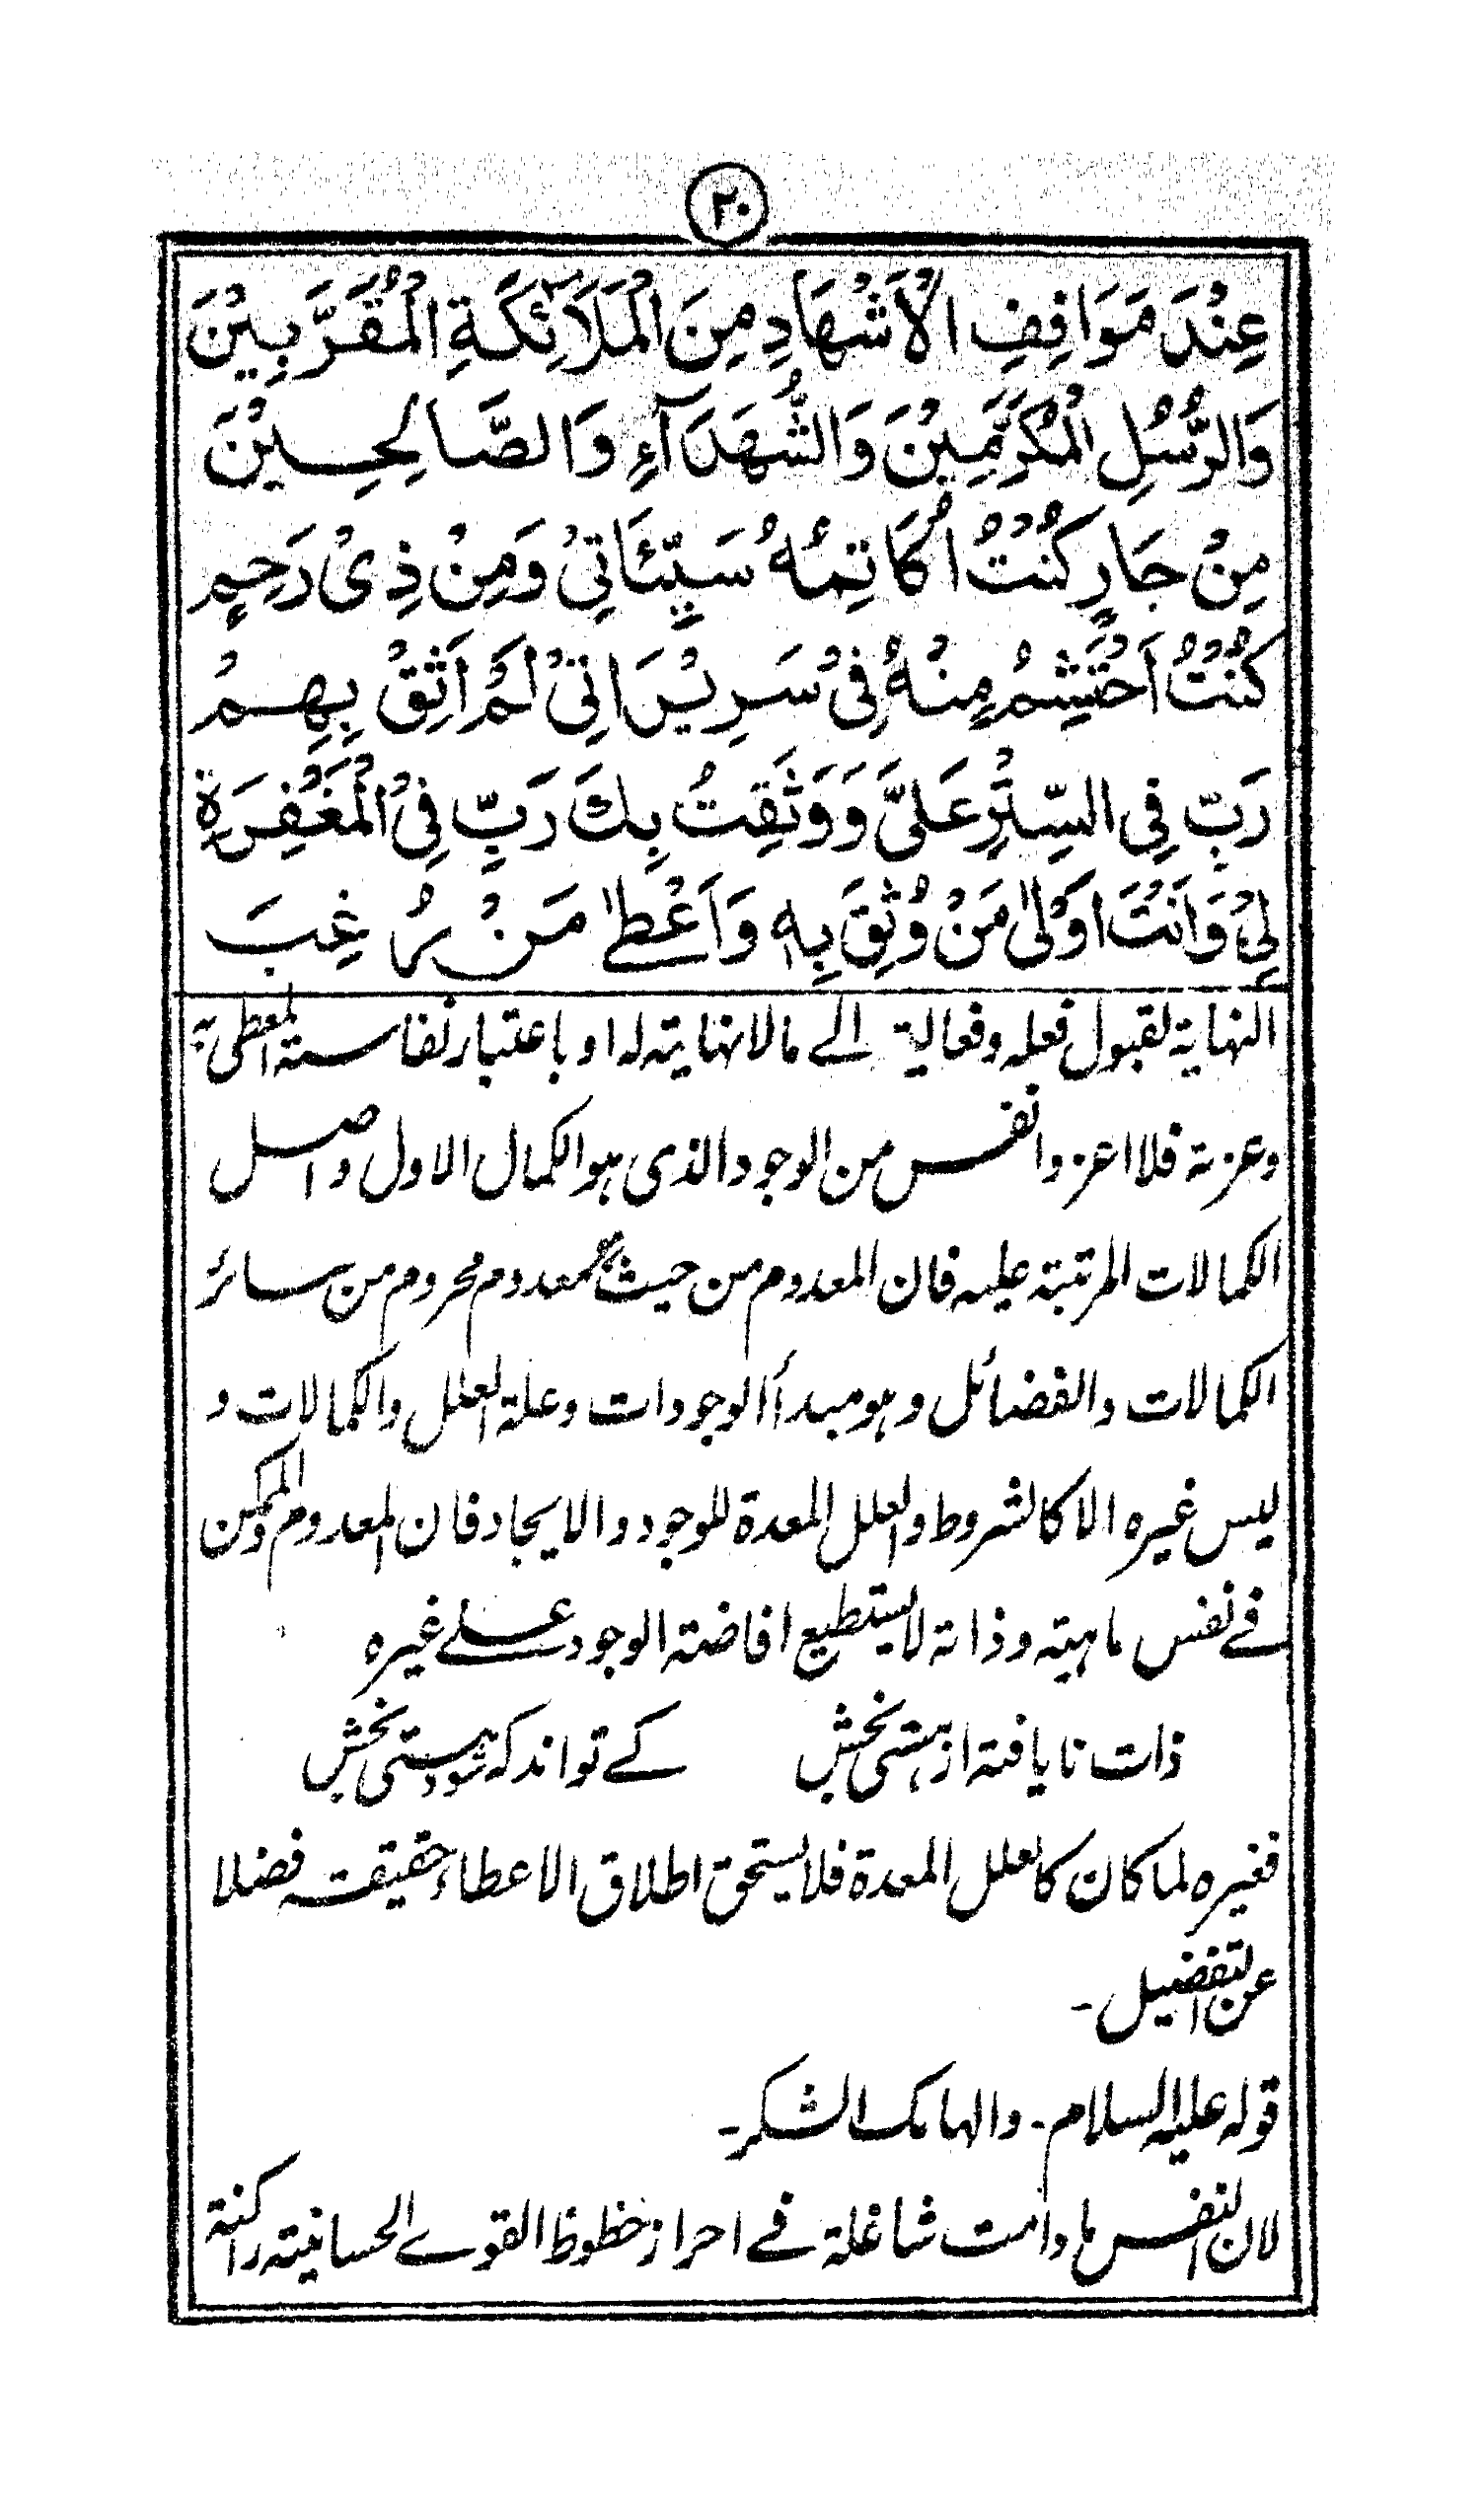 ٢٠
عِنْدَ مَوَاقِفِ الْاَشْهَادِ مِنَ الْمَلَآئِكَةِ الْمُقَرَّبِيْنَ
وَالرُّسُلِ الْمُكَرَّمِيْنَ وَالشُّهَدَآءِ وَالصَّالِحِيْنَ
مِنْ جَارٍ كُنْتُ اُكَاتِمُهُ سَيِّئَاتِيْ وَمِنْ ذِيْ رَحِمٍ
كُنْتُ اَحْتَشِمُ مِنْهُ فِيْ سَرِيْرَاتِيْ لَمْ اَثِقْ بِهِمْ
رَبِّ فِي السِّتْرِ عَلَيَّ وَوَثِقتُ بِكَ رَبِّ فِي الْمَغْفِرَةِ
لِيْ وَاَنْتَ اَوْلٰى مَنْ وُثِقَ بِهٖ وَاَعْطٰى مَنْ رُغِبَ
النهاية لقبول فعله وفعالية الے مالانهاية له او باعتبار نفاسة المعطى به
وعزته فلا اعز وانفس من الوجود الذى هو الكمال الاول واصل
الكمالات المرتبة عليه فان المعدوم من حيث معدوم محروم من سائر
الكمالات والفضائل وهو مبدأ الوجودات وعلة العلل والكمالات و
ليس غيره الا كالشروط والعلل المعدة للوجود والايجاد فان المعدوم والممكن
فے نفس ماهيته وذاته لايستطيع افاضة الوجود علے غيره
ذات نا يافته از هستى بخش كے تواند كه شود هستى بخش
فغيره لما كان كالعلل المعدة فلا يستحق اطلاق الاعطاء حقيقة فضلا
عن التفضيل۔
قوله عليه السلام۔ والهامك الشكر۔
لان النفس مادامت شاغلة فے احراز حظوظ القوے الحسانية راكنة